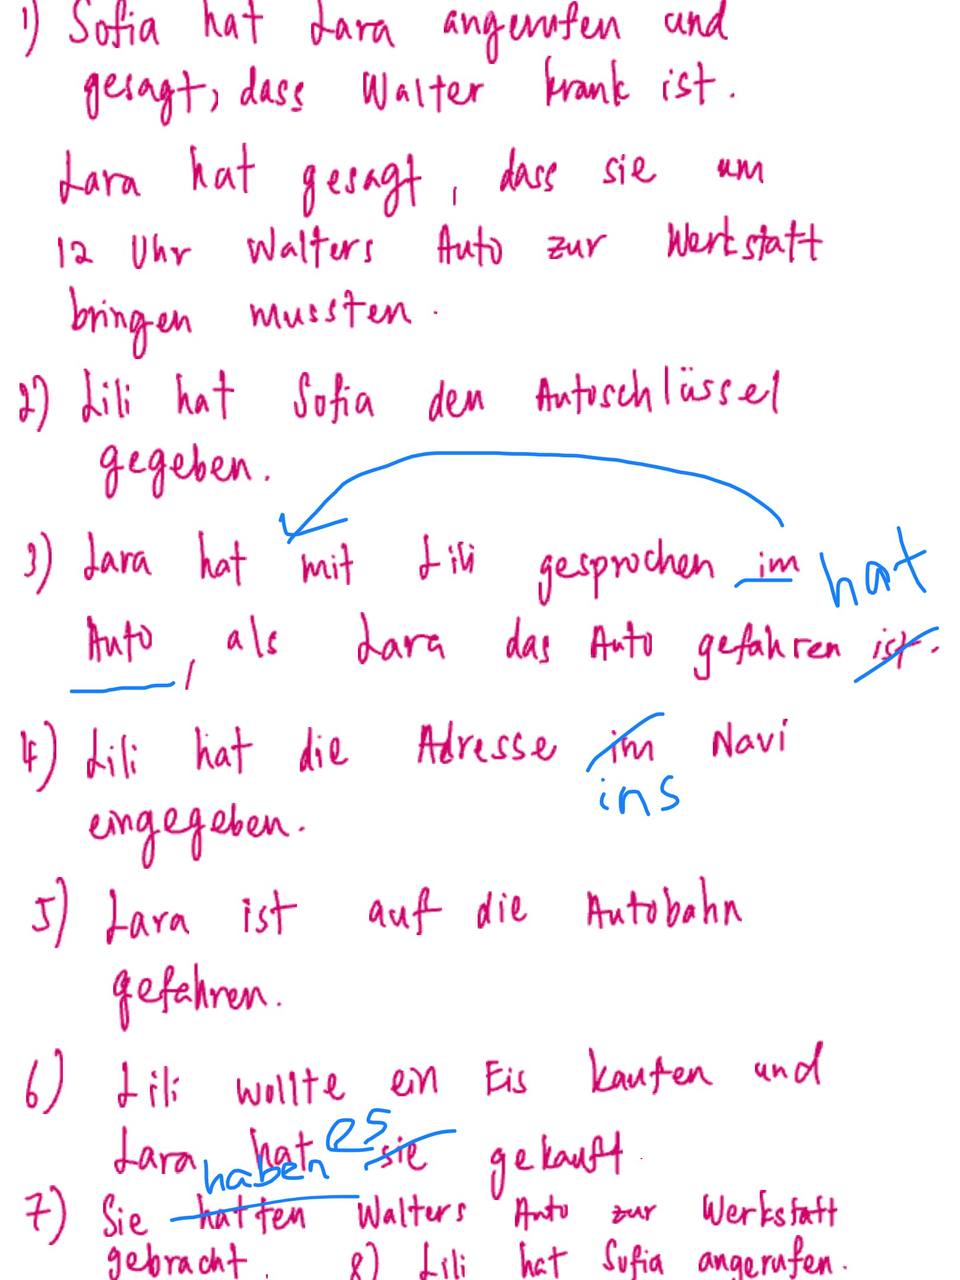 1) Sofia hat Lara angerufen und
gesagt, dass Walter krank ist.
Lara hat gesagt, dass sie um
12 Uhr Walters Auto zur Werkstatt
bringen mussten.
2) Lili hat Sofia den Autoschlüssel
gegeben.
3) Lara hat mit Lili gesprochen im hat
Auto, als Lara das Auto gefahren ist.
4) Lili hat die Adresse im Navi
ins
eingegeben.
5) Lara ist auf die Autobahn
gefahren.
6) Lili wollte ein Eis kaufen und
es
Lara hat sie gekauft.
haben
7) Sie hatten Walters Auto zur Werkstatt
gebracht. 8) Lili hat Sofia angerufen.